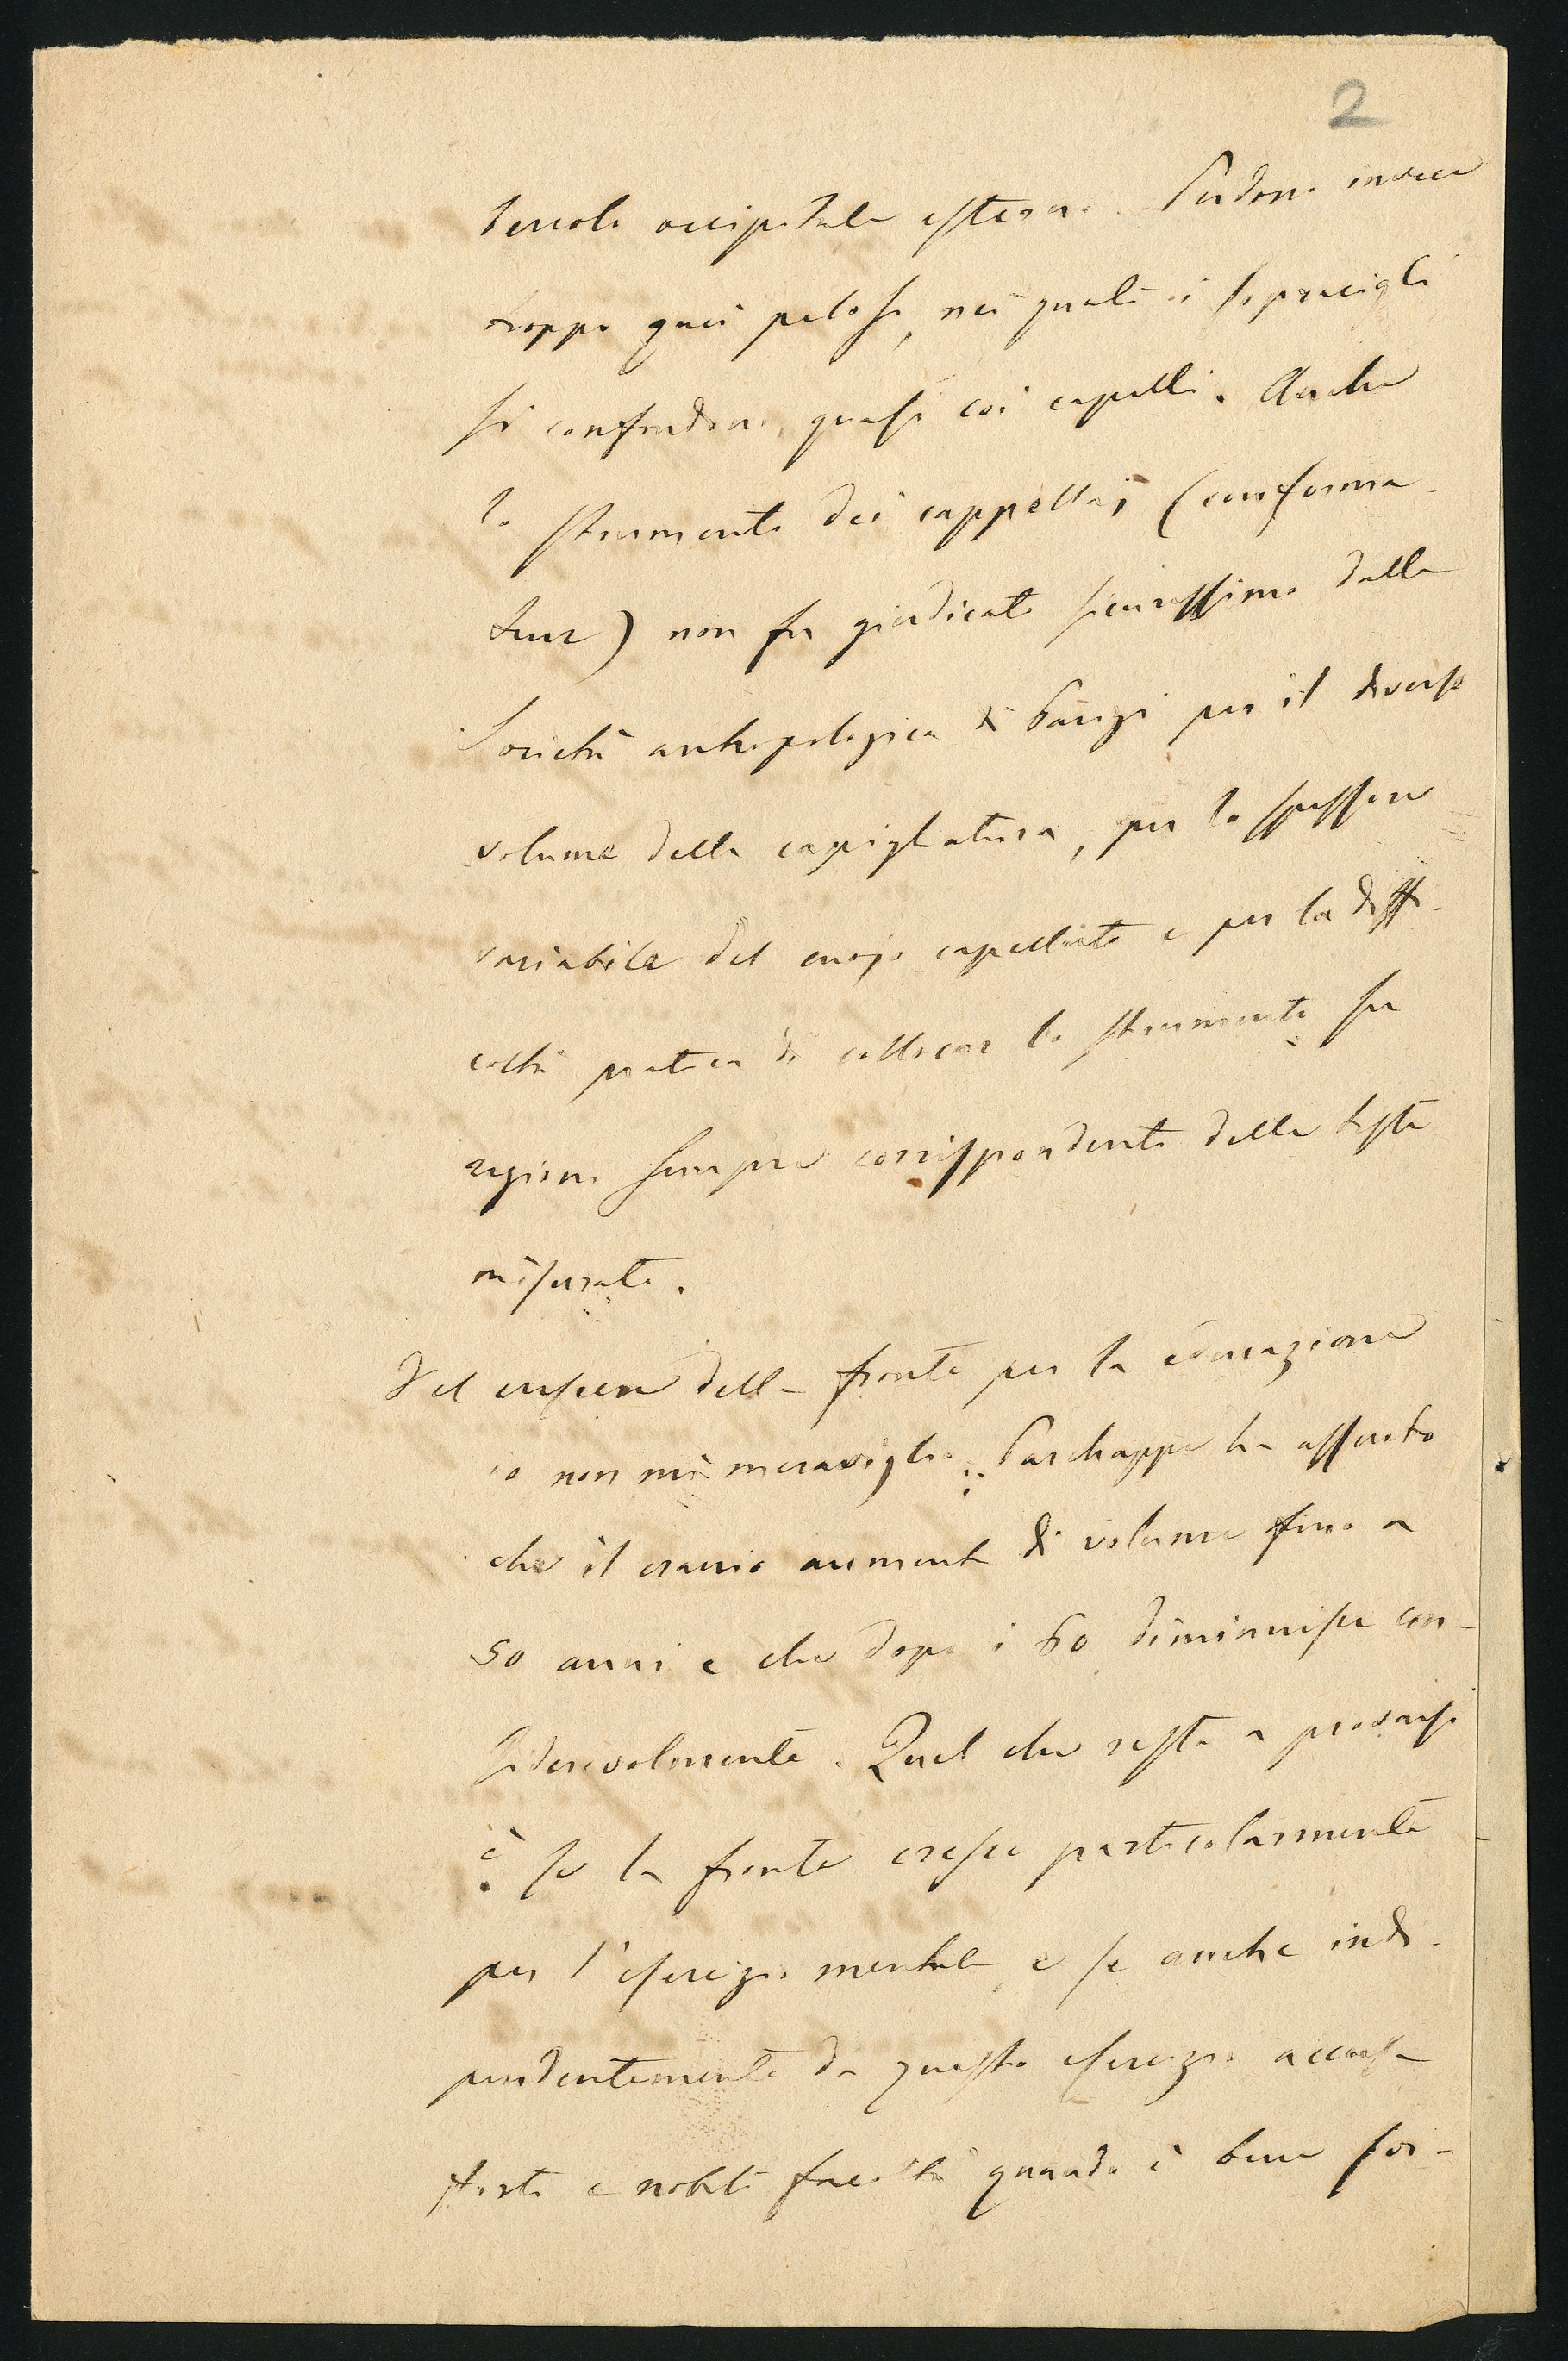 2
bercolo occipitale esterno. Perdono invece
troppo quei pelosi, nei quali i sopracigli
si confondono quasi coi capelli. Anche
lo strumento dei cappellaj (conforma-
teur) non fu giudicato sicurissimo dalla
Società antropologica di Parigi per il diverso
volume della capigliatura, per lo spessore
variabile del cuojo capelluto e per la diffi-
coltà pratica di collocar lo strumento su
regioni sempre corrispondenti delle teste
misurate.
Del crescere della fronte per la educazione
io non mi meraviglio: Parchappe ha asserito
che il cranio aumenta di volume fino a
50 anni e che dopo i 60 diminuisce con-
siderevolmente. Quel che resta a provarsi
è se la fronte cresce particolarmente
per l'esercizio mentale e se anche indi-
pendentemente da questo esercizio accusa
forti e nobili facoltà quando è bene for-